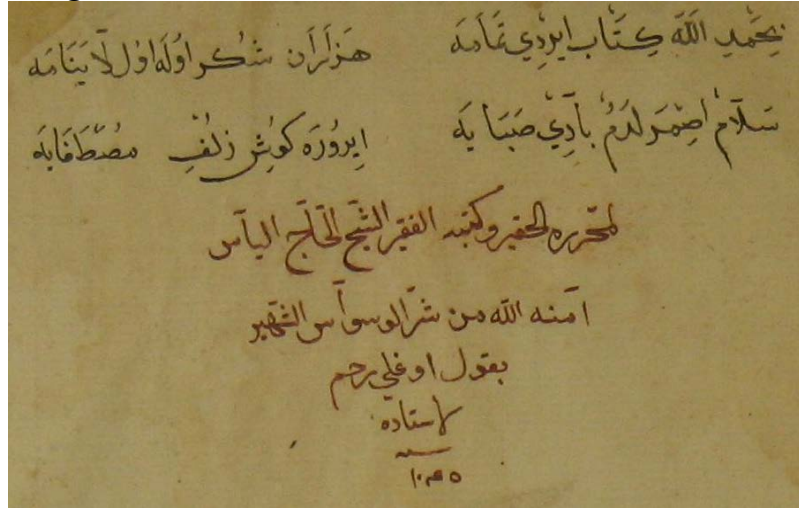 بِحَمْدِ اللّٰه كِتَاب ايردِي تَمَامَه هَزَارَان شُكر اوُلَه اوُل لَايَنَامَه
سَلَام اصْمَرلَدُم بَادِي صَبَا يَه ايرورَه كوُش زلُفِ مصْطَفَايَه
لمحرره الحقير وكتبه الفقير الشيخ الحاج الياس
آمنه الله من شر الوسواس الشهير
بقول اوغلي رحم
لاستاده
سنه